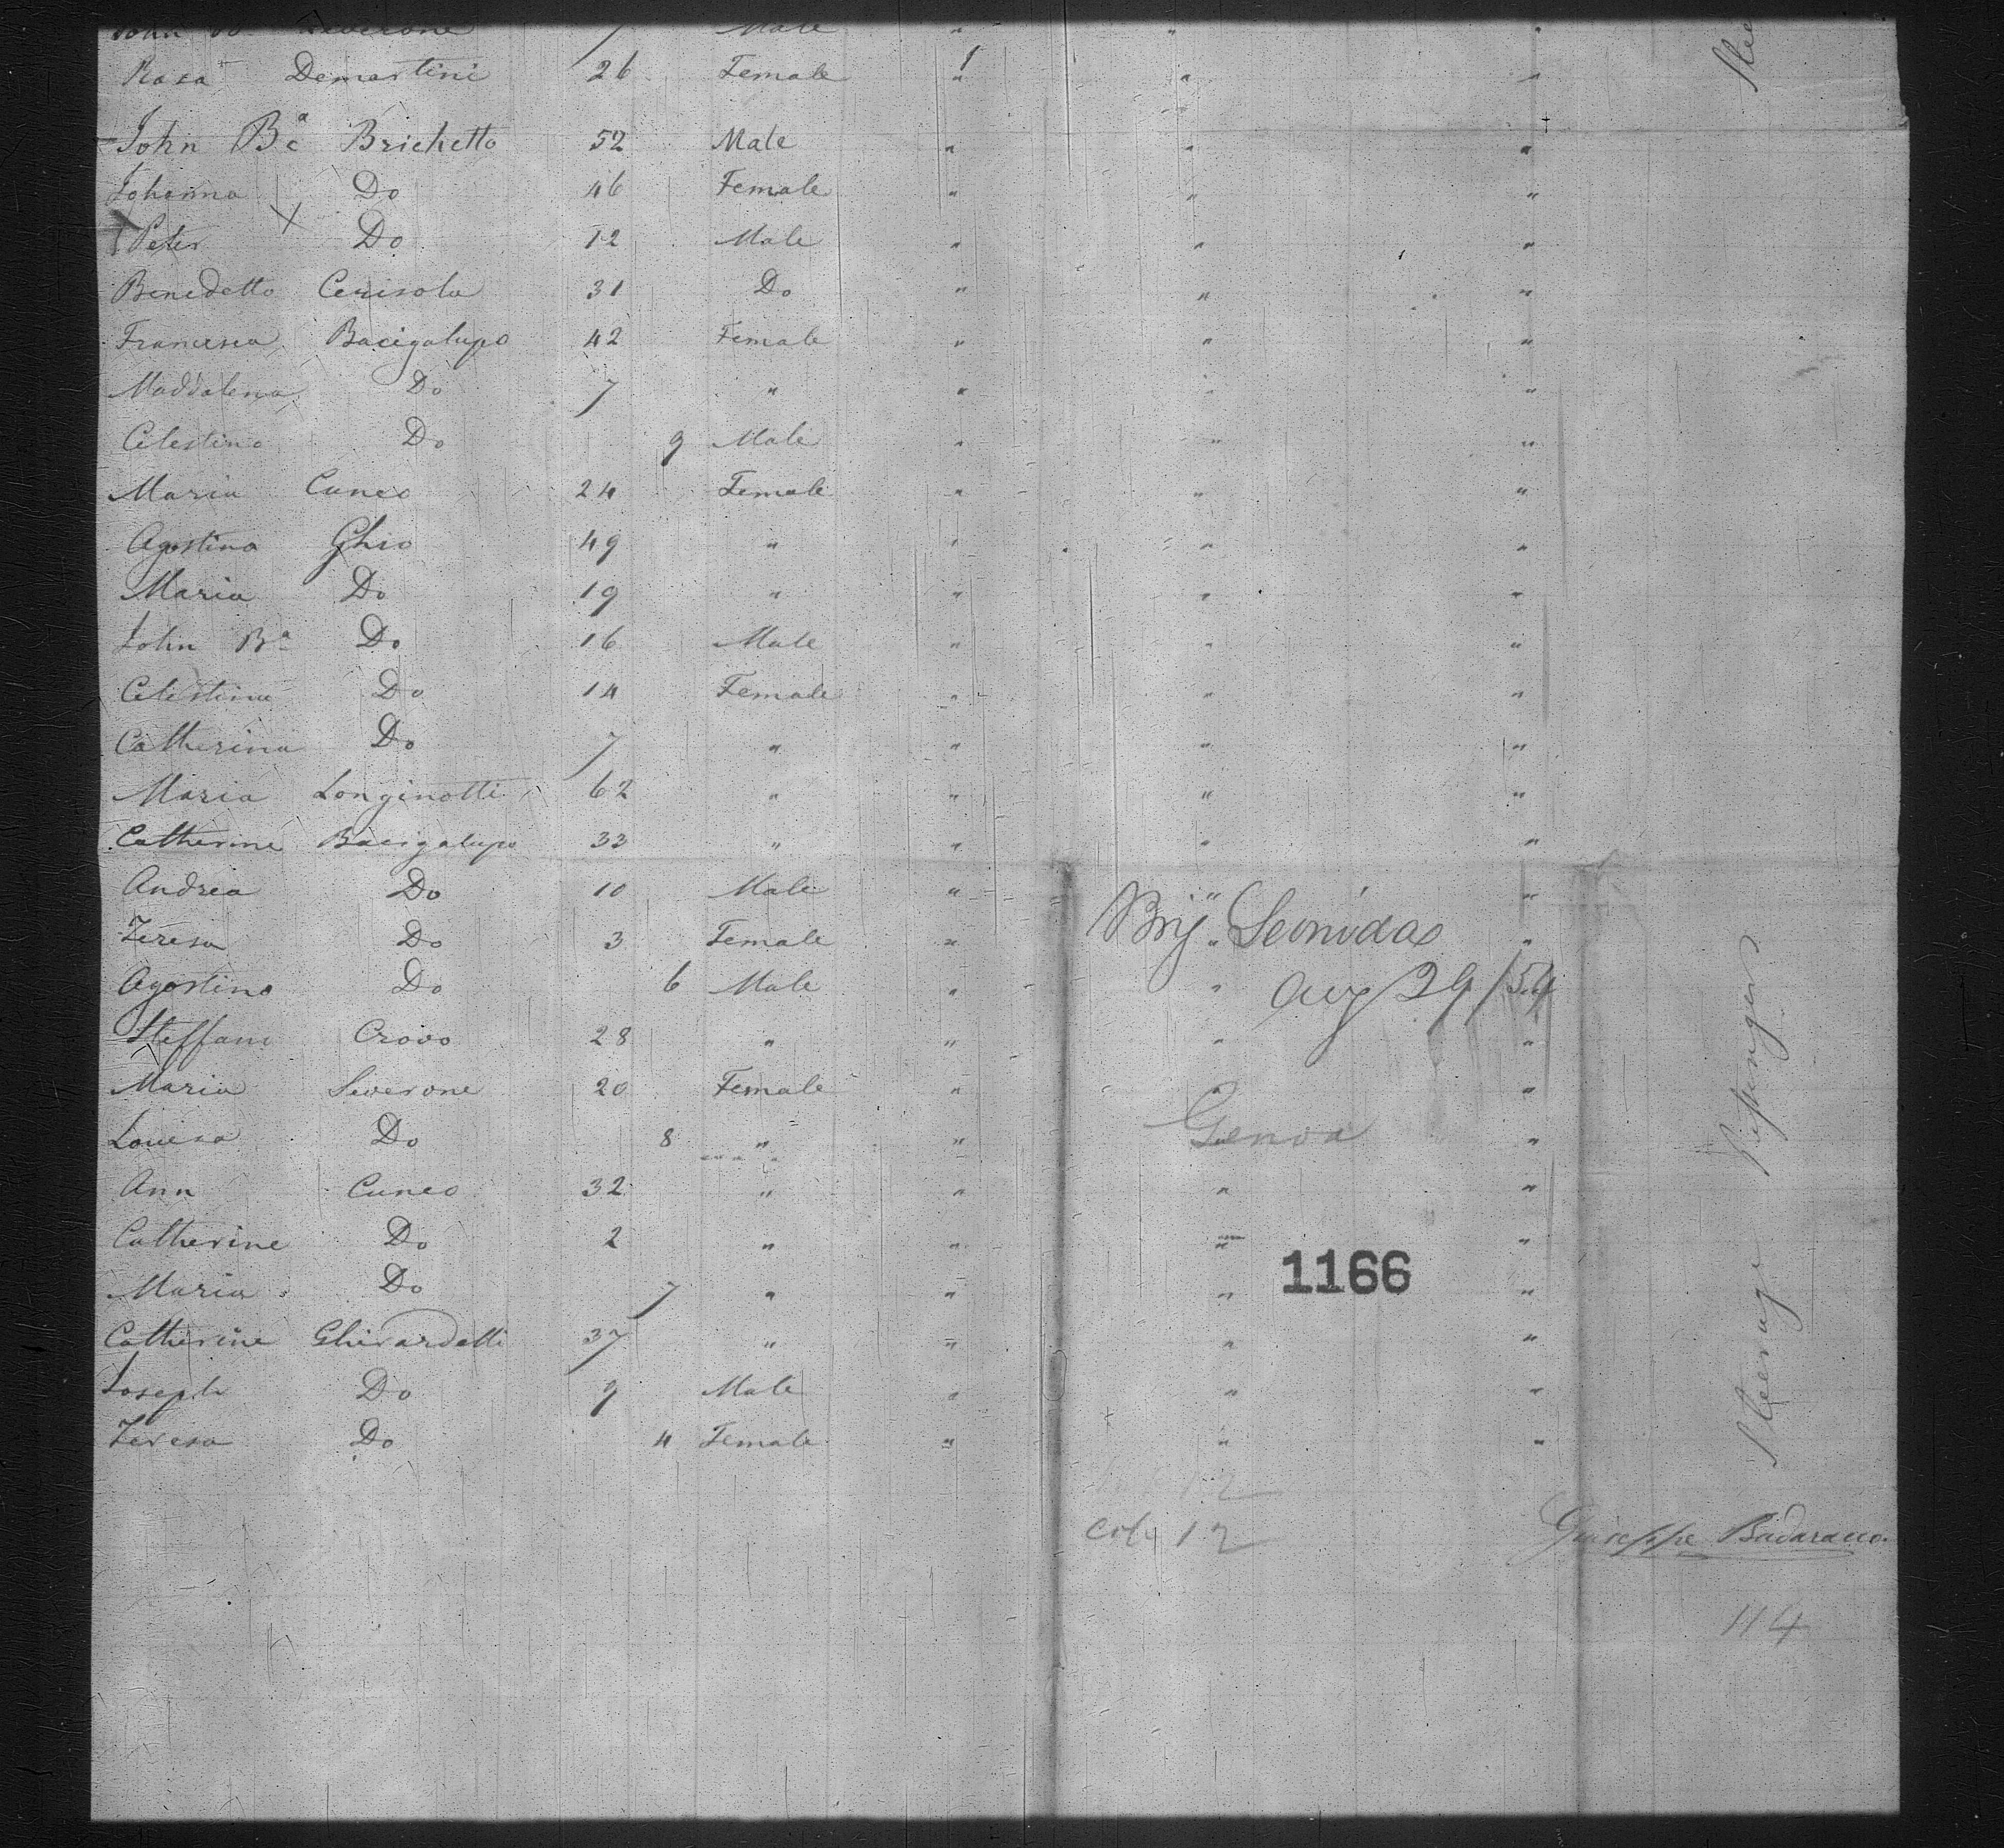 John Severone 7 Male " " "
Rosa Demartini 26 Female " " "
John Bª Brichetto 52 Male " " "
Johanna Do 46 Female " " "
Peter Do 12 Male " " "
Benedetto Cerisola 31 Do " " "
Francesca Bacigalupo 42 Female " " "
Maddalena Do 7 " " " "
Celestino Do 9 Male " " "
Maria Cuneo 24 Female " " "
Agostina Ghio 49 " " " "
Maria Do 19 " " " "
John Bª Do 16 Male " " "
Celestina Do 14 Female " " "
Catherina Do 7 " " " "
Maria Longinotti 62 " " " "
Catherine Bacigalupo 33 " " " "
Andrea Do 10 Male " " "
Teresa Do 3 Female " " "
Brig Leonidas
Agostino Do 6 Male " " "
Aug 29/54
Steffano Crovo 28 " " " "
Maria Severone 20 Female " " "
Louisa Do 8 " " "
Genoa
Ann Cuneo 32 " " " "
Catherine Do 2 " " " "
1166
Maria Do 7 " " " "
Catherine Ghirardelli 37 " " " "
Joseph Do 9 Male " " "
Teresa Do 4 Female " " "
Steerage Passengers
12
Giuseppe Badaracco.
114